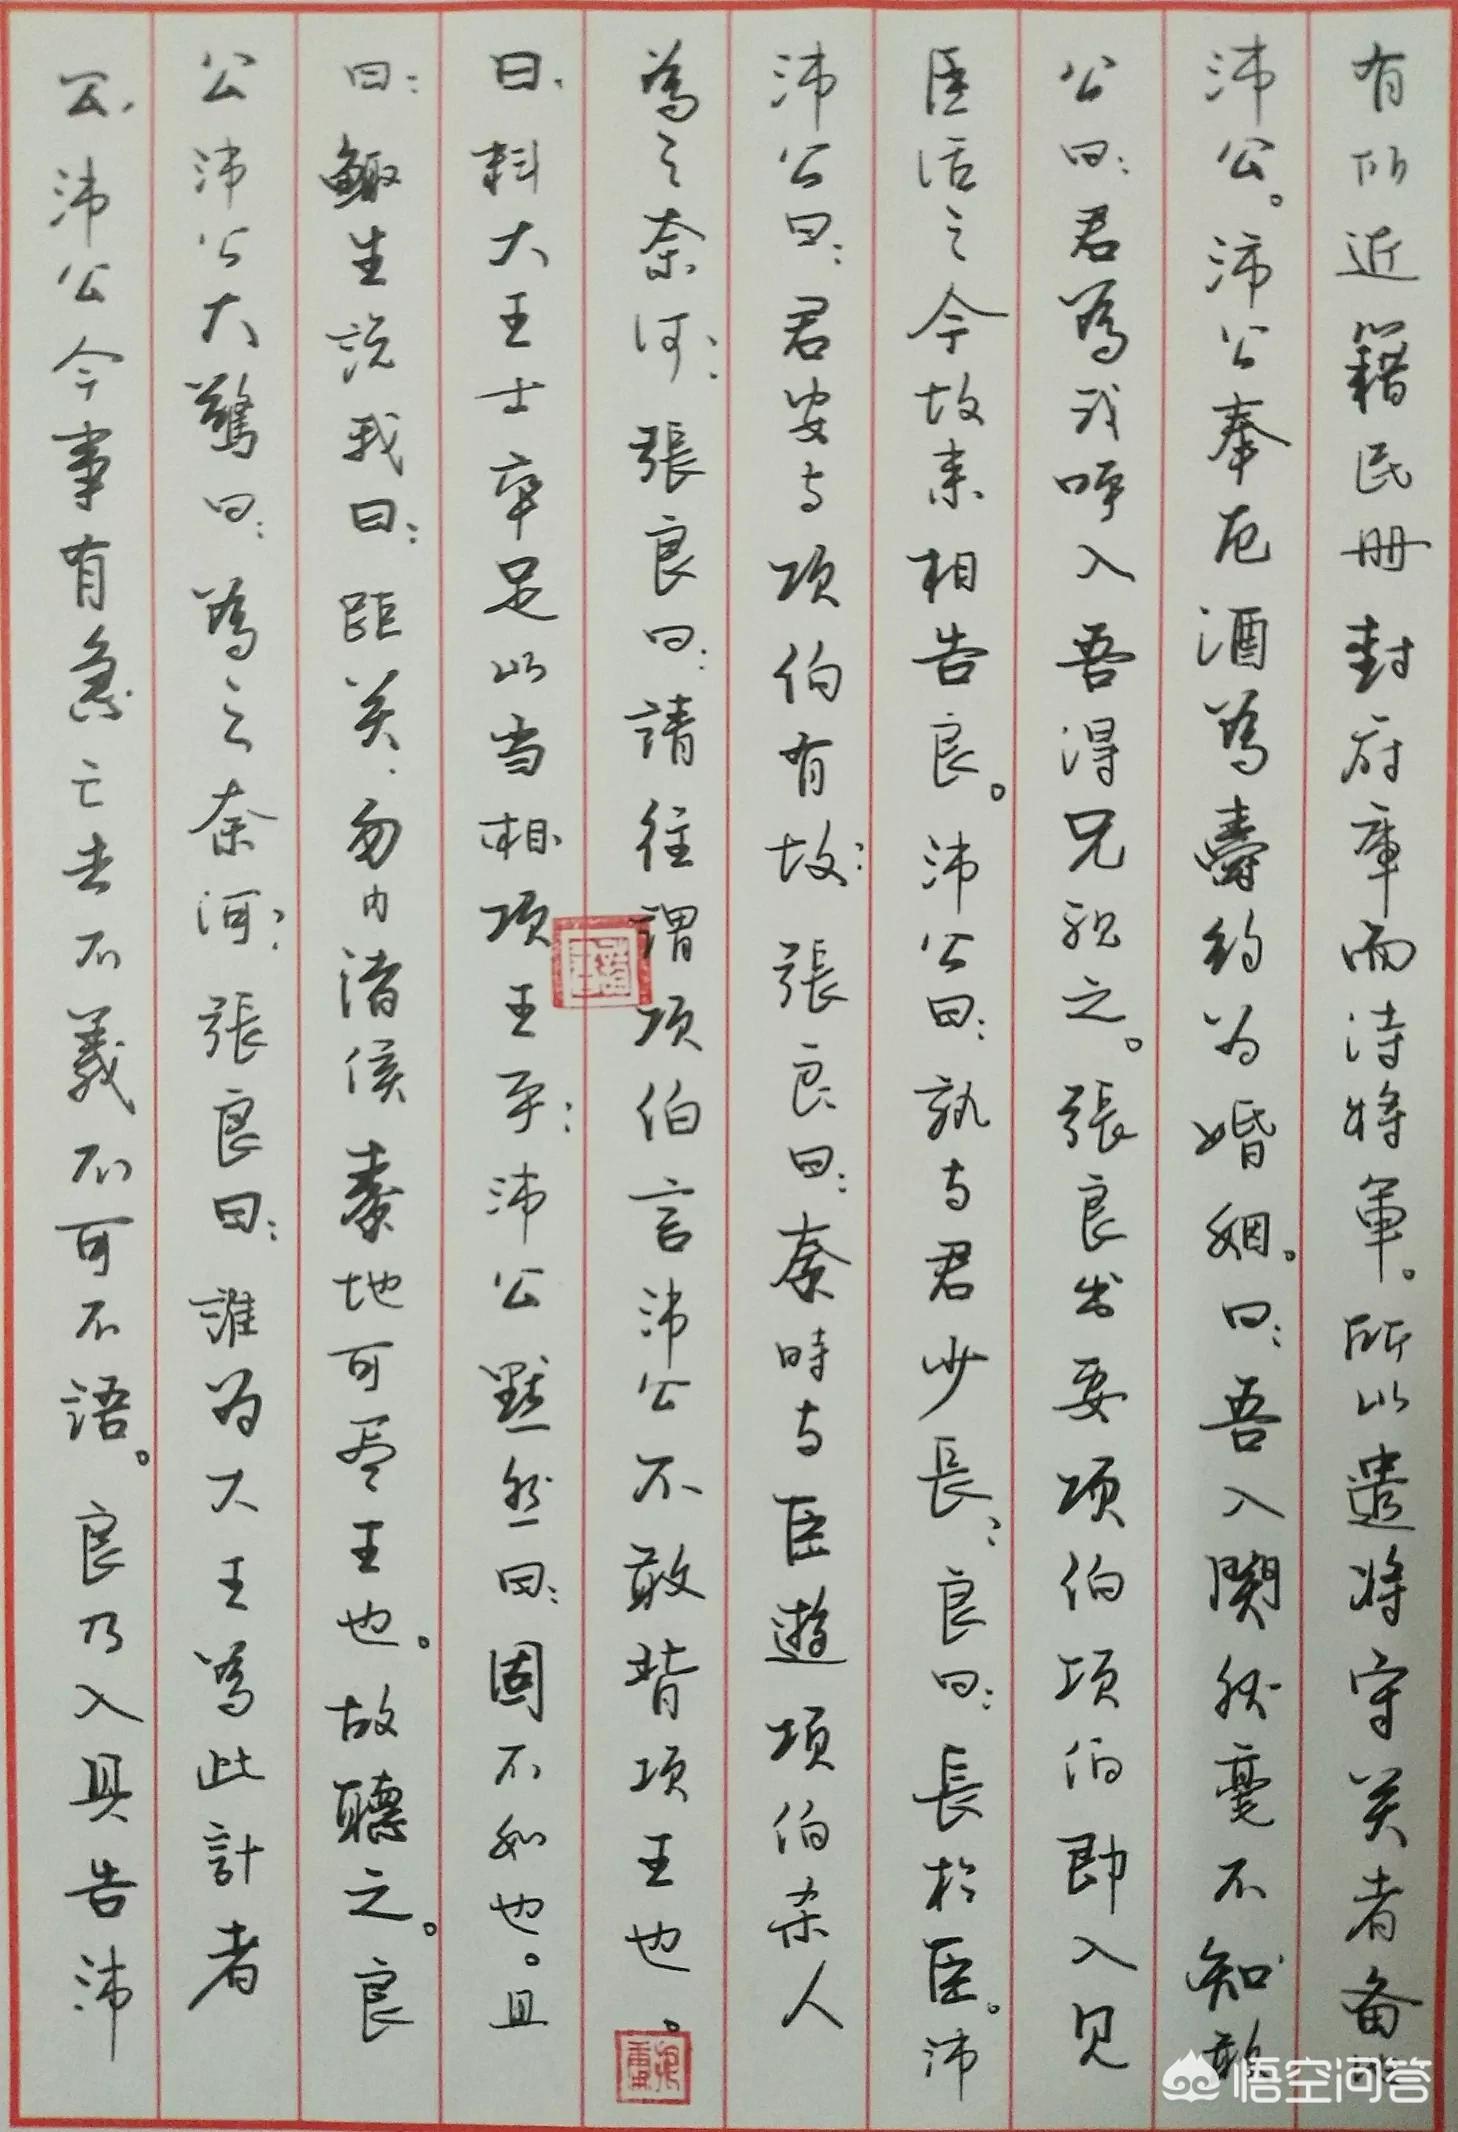 公，沛公今事有急亡去不義不可不語。良乃入具告沛
公沛公大驚曰：為之奈何：張良曰：誰为大王為此計者
曰：鯫生說我曰：距关，勿内诸侯秦地可尽王也。故聽之。良
曰，料大王士卒足以当相项王乎：沛公默然曰：固不如也。且
為之奈何：張良曰：請往謂项伯言沛公不敢背项王也。
沛公曰：君安与项伯有故：張良曰：秦時与臣遊项伯杀人
臣活之今故来相告良。沛公曰：孰与君少長：良曰：長於臣。沛
公曰：君為我呼入吾得兄之。張良出要项伯项伯即入见
沛公。沛公奉卮酒為壽约为婚姻。曰：吾入関秋毫不知敢
有所近籍民册封府庫而待将軍。所以遣将守关者备
悟空问答